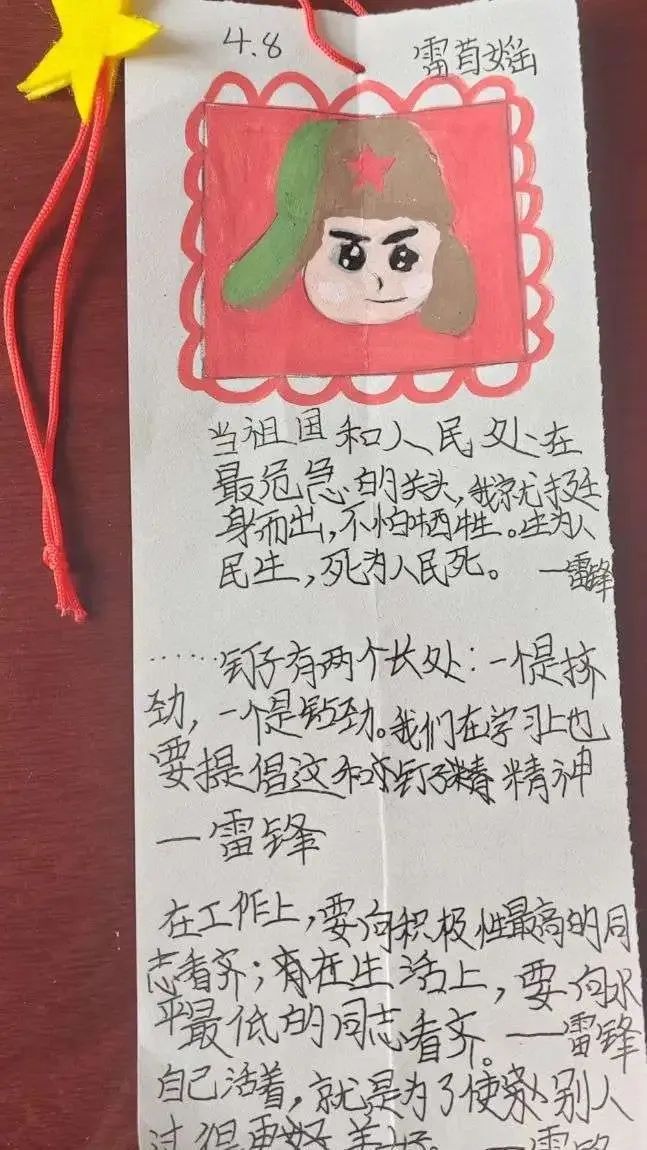 4.8
雷苜瑶
当祖国和人民处在
最危急的关头,我就挺
身而出,不怕牺牲。生为人
民生,死为人民死。 —雷锋
……钉子有两个长处:一个是挤
劲,一个是钻劲。我们在学习上也
要提倡这种钉子精 精神
—雷锋
在工作上,要向积极性最高的同
志看齐;在生活上,要向水
平最低的同志看齐。—雷锋
自己活着,就是为了使 别人
过得更好 美好。—雷锋